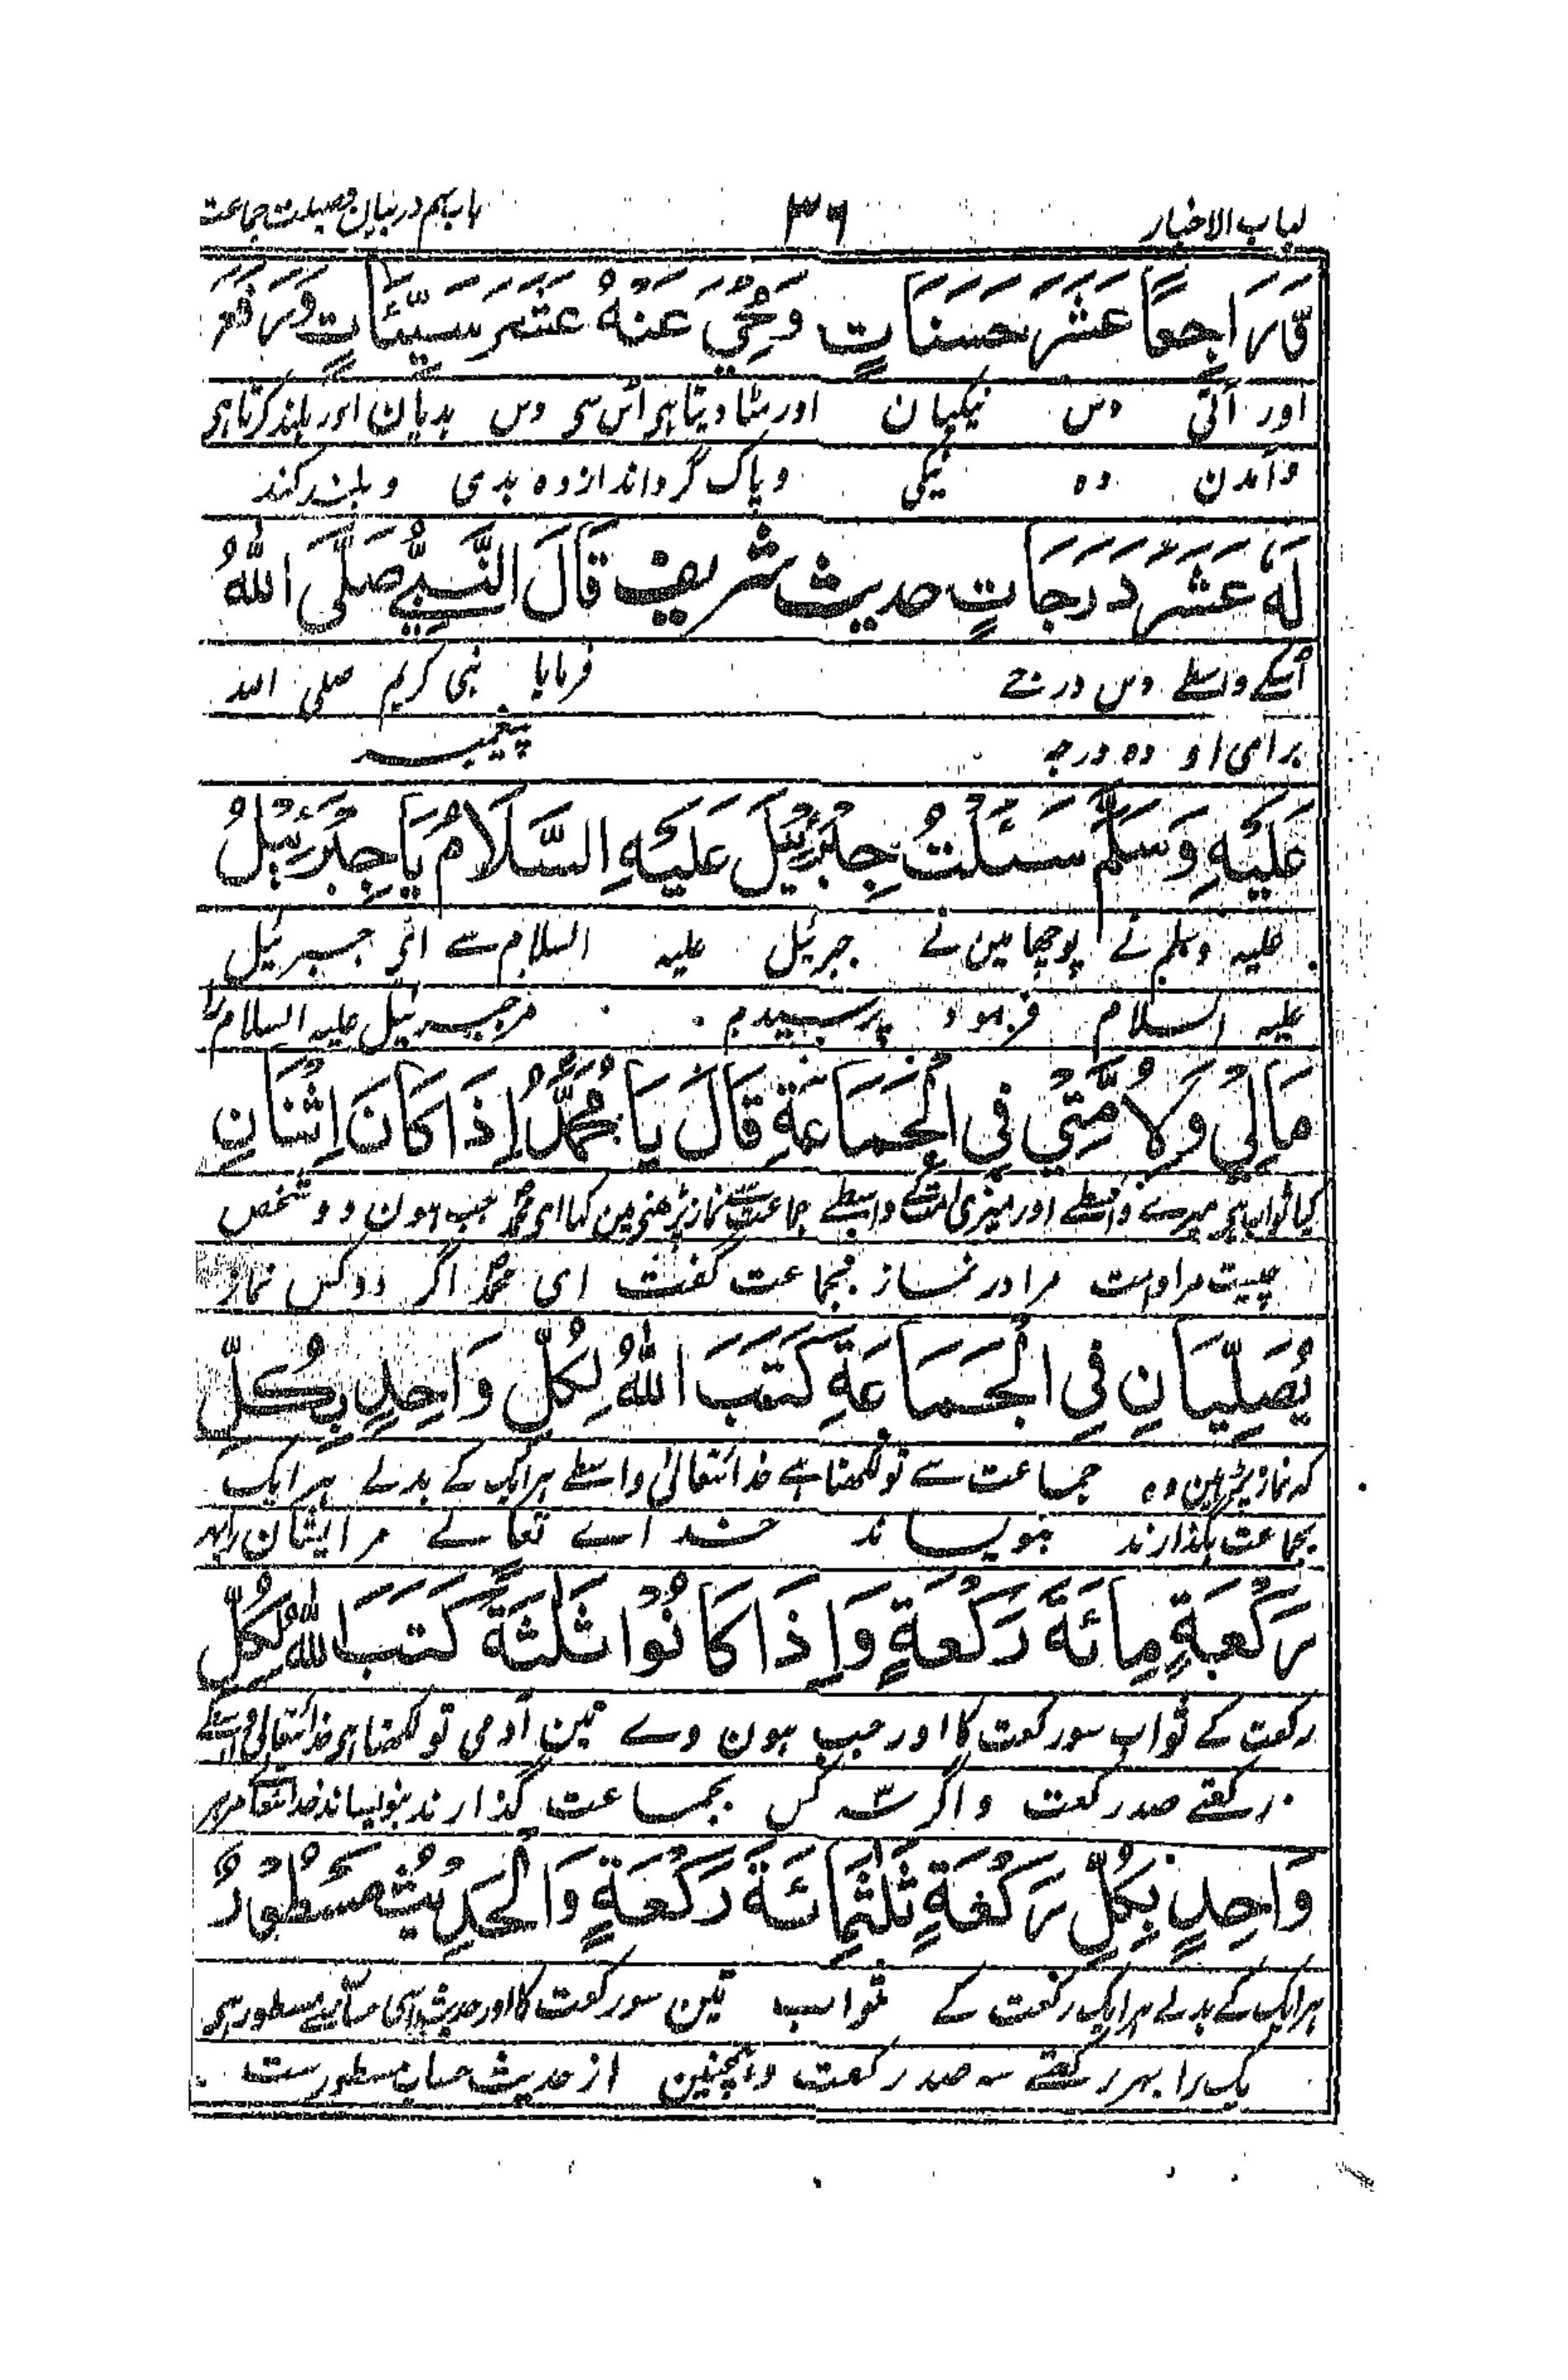 لباب الاخبار ۳۶ باب نہم در بیان فضیلت جماعت
قَّرَاجِعًا عَشَرَ حَسَنَاتٍ وَمُحِيَ عَنْهُ عَشَرَ سَيِّئَاتٍ وَرَفَعَ
اور آتی دس نیکیان اور مٹا دیتا ہی اُس سی دس بدیان اور بلند کرتا ہی
وآمدن دہ نیکی و پاک گرداند ازو دہ بدی و بلند کند
لَهُ عَشَرَ دَرَجَاتٍ حدیث شریف قَالَ النَّبِيُّ صَلَّى اللّٰهُ
اُسکے واسطے دس درجے فرمایا نبی کریم صلی اللہ
برای او دہ درجہ پیغمبر
عَلَيْهِ وَسَلَّمَ سَئَلْتُ جِبْرَئِيْلَ عَلَيْهِ السَّلَامُ يَا جِبْرَئِيْلُ
علیہ وسلم نے پوچھا مین نے جبرئیل علیہ السلام سے ای جبرئیل
علیہ السلام فرمود پرسیدم مر جبرئیل علیہ السلام را
مَالِيْ وَلِاُمَّتِيْ فِي الْجَمَاعَةِ قَالَ يَا مُحَمَّدُ اِذَا كَانَ اِثْنَانِ
کیا ثواب ہی میرے واسطے اور میری امت کے واسطے جماعت سے نماز پڑھنی مین کہا ای محمد جب ہون دو شخص
چیست مر امت مرا در نماز بجماعت گفت ای محمد اگر دو کس نماز
يُصَلِّيَانِ فِي الْجَمَاعَةِ كَتَبَ اللّٰهُ لِكُلِّ وَاحِدٍ بِكُلِّ
کہ نماز پڑہین وہ جماعت سے تو لکھتا ہے خدا تعالیٰ واسطے ہر ایک کے بدلے ہر ایک
بجماعت بگذارند بنویساند خداے تعالے مر ایشان را بہر
رَكْعَةٍ مِائَةَ رَكْعَةٍ وَاِذَا كَانُوْا ثَلٰثَةً كَتَبَ اللّٰهُ لِكُلِّ
رکعت کے ثواب سو رکعت کا اور جب ہون وے تین آدمی تو لکھتا ہی خدا تعالی واسطے
رکعتے صد رکعت و اگر سہ کس بجماعت گذارند بنویساند خدا تعالی مر ہر
وَاحِدٍ بِكُلِّ رَكْعَةٍ ثَلٰثَمِائَةَ رَكْعَةٍ وَالْحَدِيْثُ مَسْطُوْرٌ
ہر ایک کے بدلے ہر ایک رکعت کے ثواب تین سو رکعت کا اور حدیث اسی مسطور ہی
یک را بہر رکعتے سہ صد رکعت و ہمچنین از حدیث مسطورست